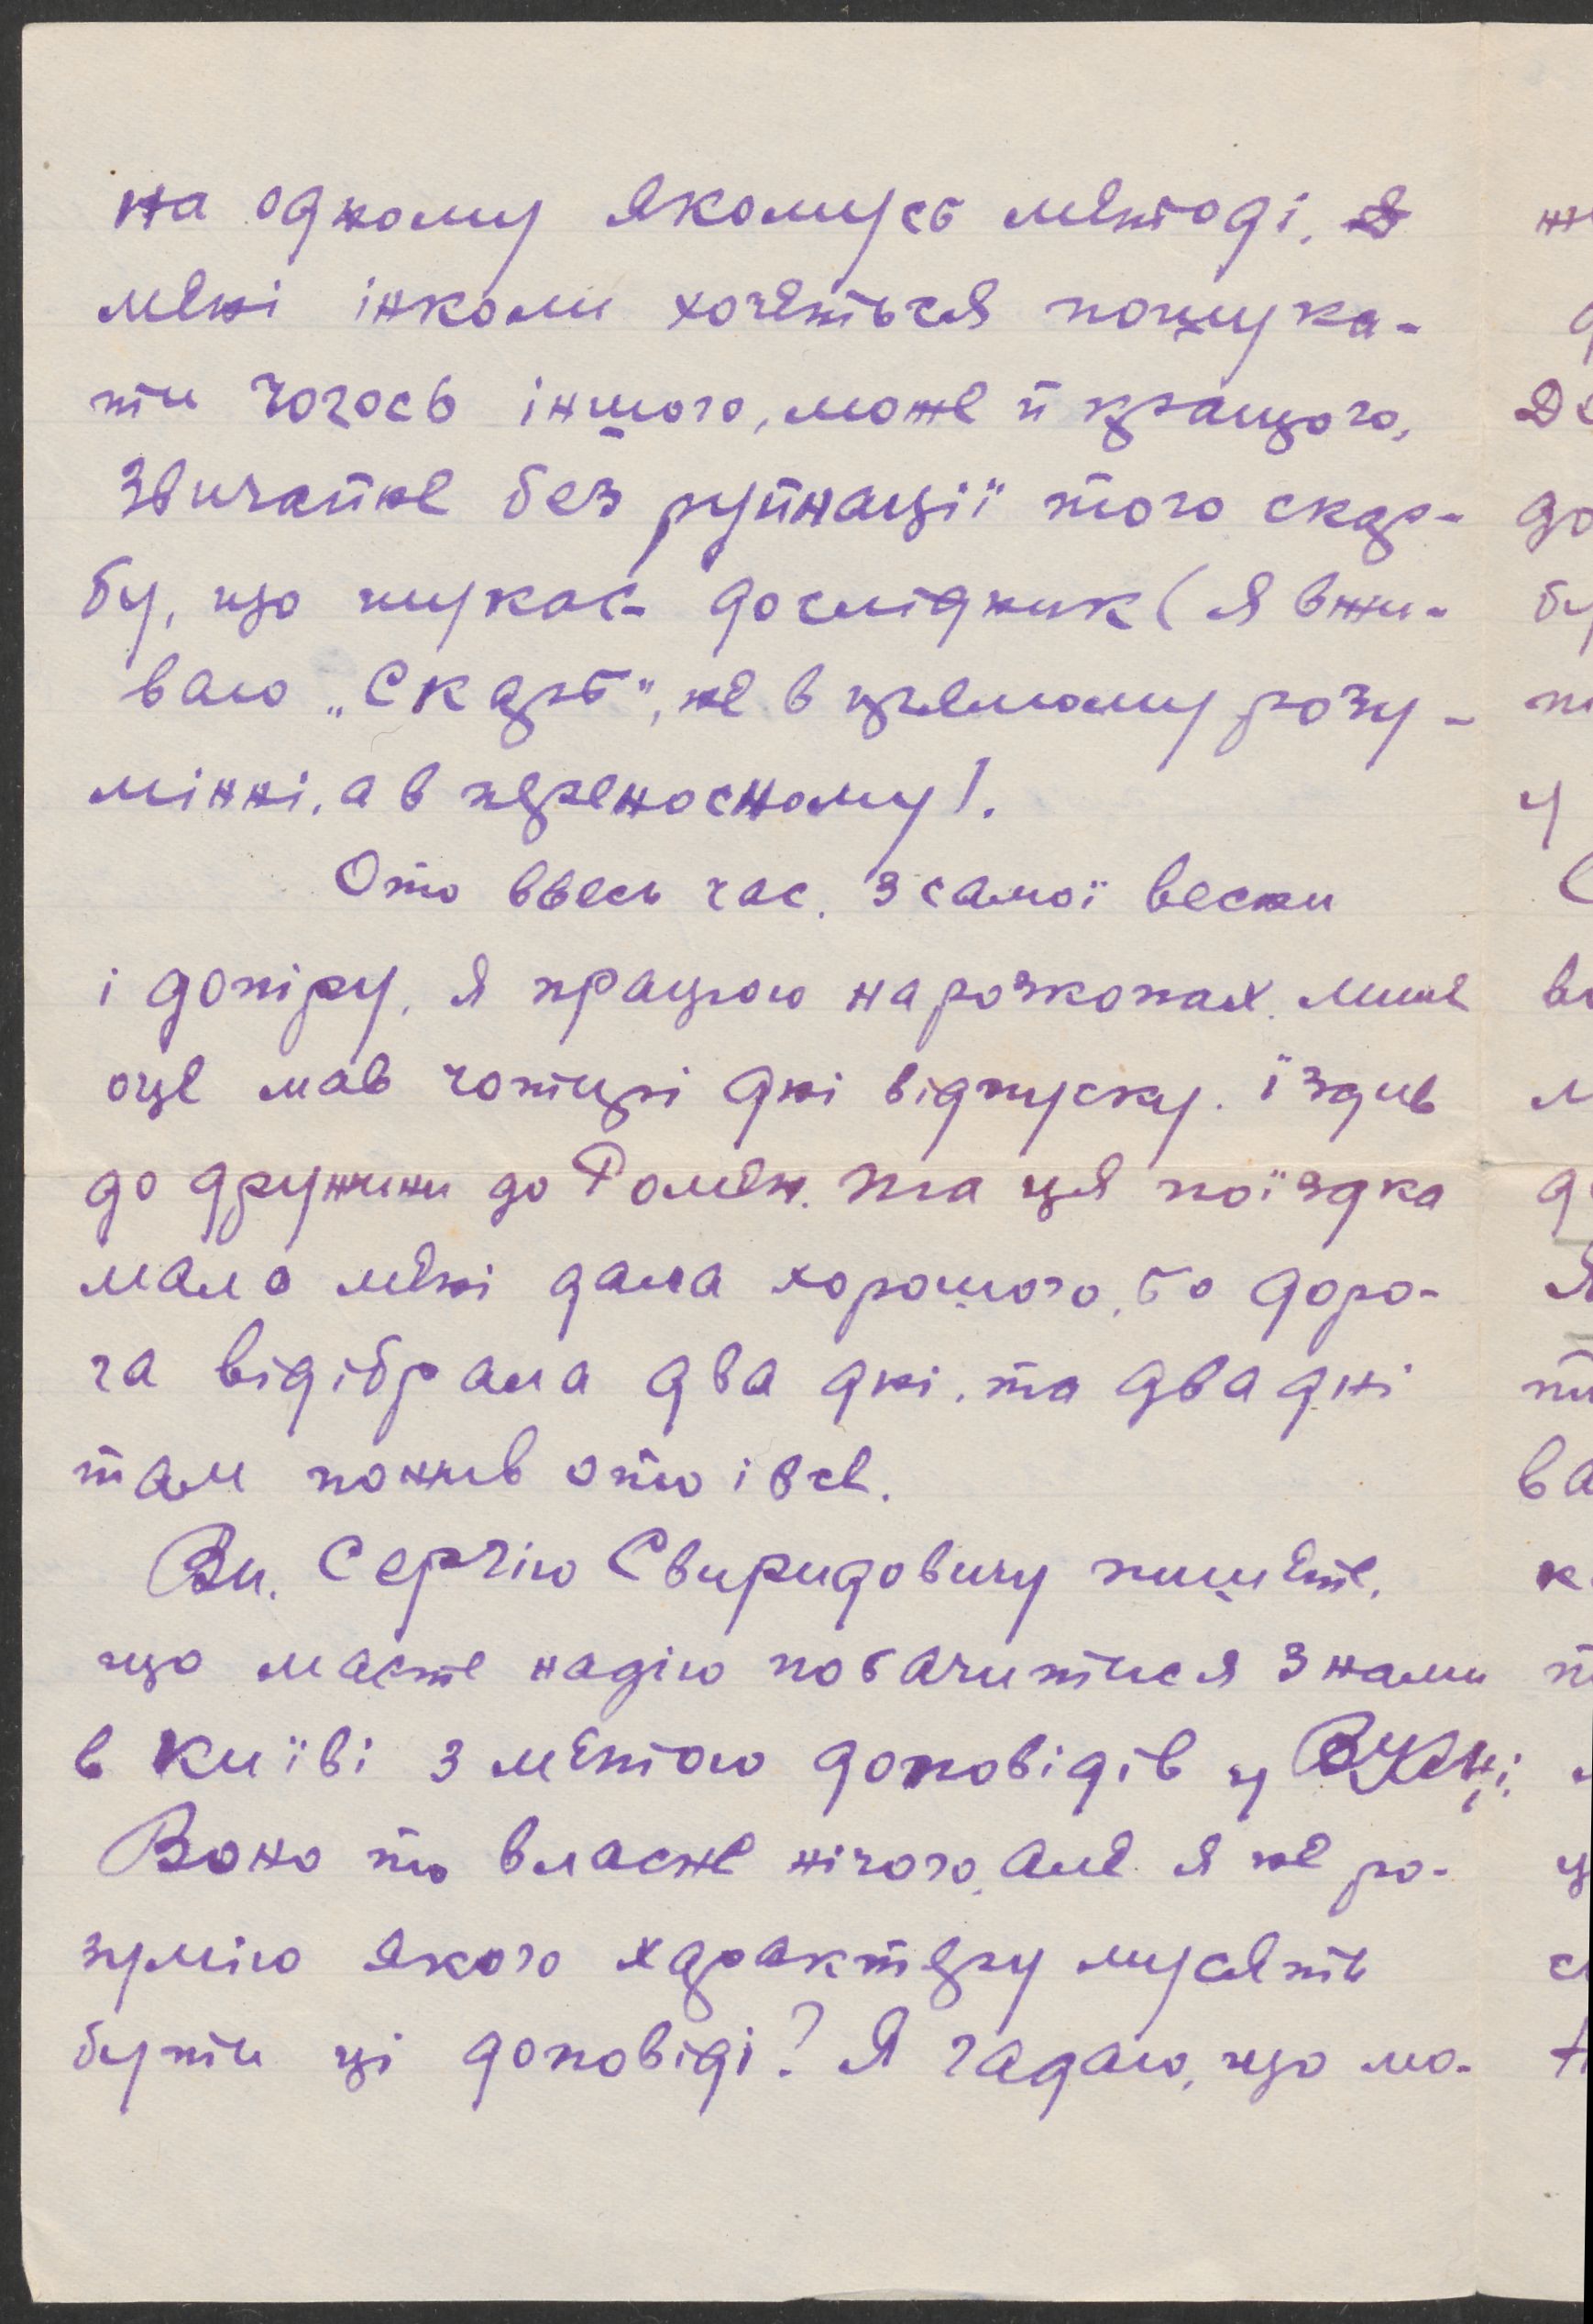 на одному якомусь методі,
мені інколи хочеться пошука-
ти чогось іншого, може й кращого,
звичайне без руйнації того скар-
бу, що шукає дослідник (я вжи-
ваю „скарб", не в прямому розу-
мінні, а в переносному).
Ото ввесь час, з самої весни
і допіру, я працюю на розкопах, лише
оце мав чотирі дні відпуску. їздив
до дружини до Ромен. та ця поїздка
мало мені дала хорошого, бо доро-
га відібрала два дні, та два дні
там пожив ото і все.
Ви, Сергію Свиридовичу пишете,
що маєте надію побачитися з нами
в Київі з метою доповідів у
Воно то власне нічого, але я не ро-
зумію якого характеру мусять
бути ці доповіді? Я гадаю, що мо-